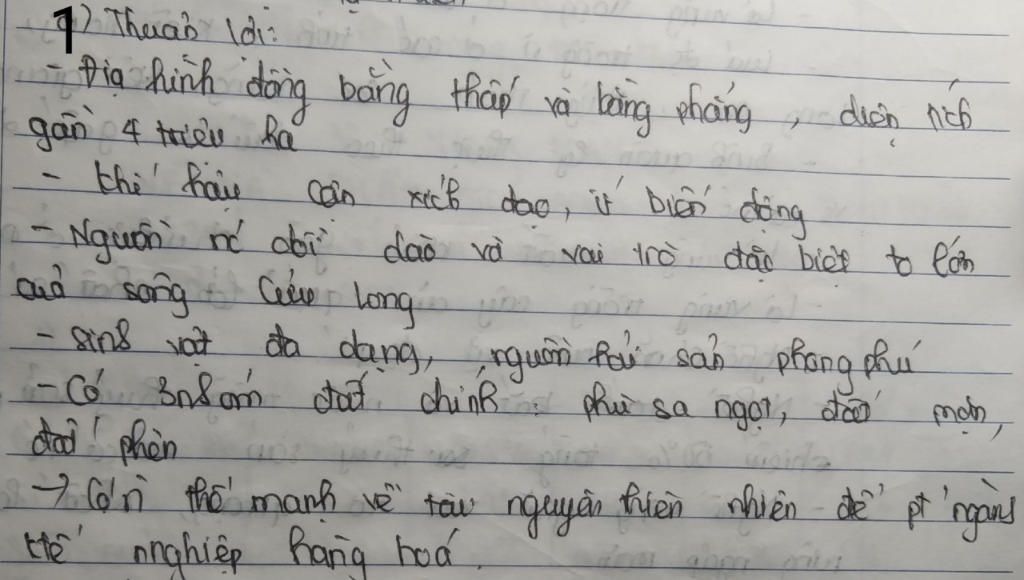 1) Thuận lợi:
- Địa hình đồng bằng thấp và bằng phẳng, diện tích
gần 4 triệu ha
- Khí hậu cận xích đạo, ít biến động
- Nguồn nc dồi dào và vai trò đặc biệt to lớn
của sông Cửu Long
- Sinh vật đa dạng, nguồn hải sản phong phú
- Có 3 nhóm đất chính: phù sa ngọt, đất mặn,
đất phèn
→ Có n` thế mạnh về tài nguyên thiên nhiên để pt ngành
ktế nnghiệp hàng hoá.